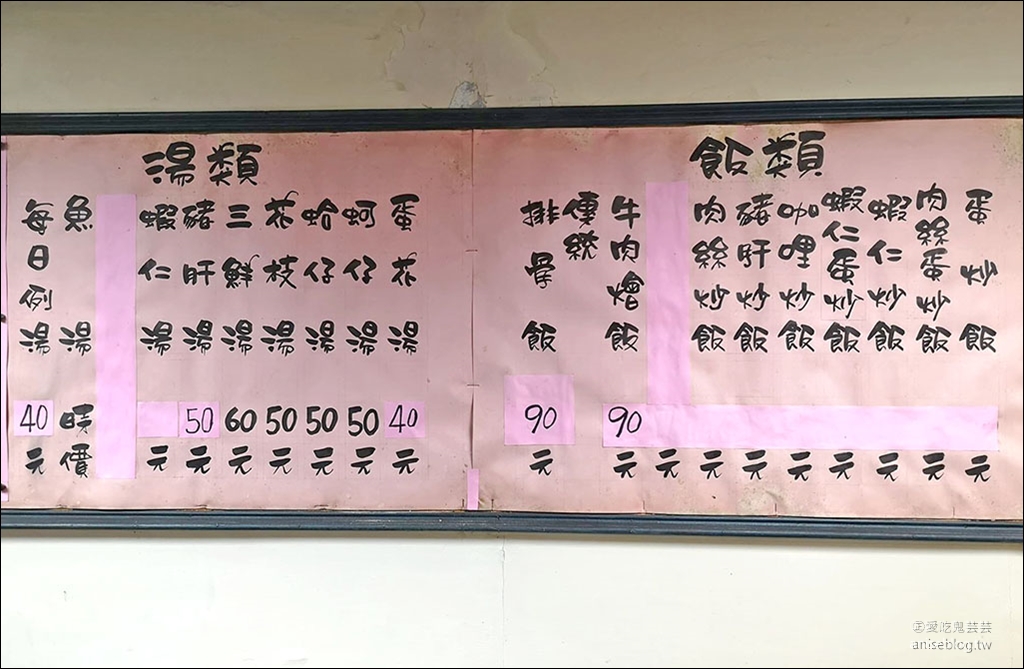 飯類
蛋炒飯 元
肉絲蛋炒飯 元
蝦仁炒飯 元
蝦仁蛋炒飯 元
咖哩炒飯 元
豬肝炒飯 元
肉絲炒飯 元
元
牛肉燴飯 90元
傳統
排骨飯 90元
湯類
蛋花湯 40元
蚵仔湯 50元
蛤仔湯 50元
花枝湯 50元
三鮮湯 60元
豬肝湯 50元
蝦仁湯 元
魚湯 時價
每日例湯 40元
愛吃鬼芸芸
aniseblog.tw